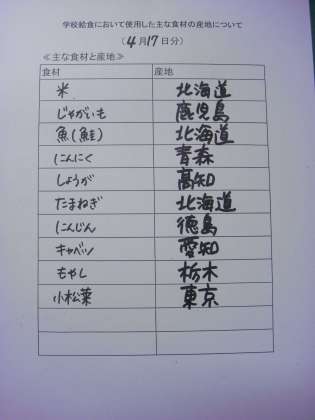 学校給食において使用した主な食材の産地について
(4月17日分)
≪主な食材と産地≫
食材 産地
米 北海道
じゃがいも 鹿児島
魚(鮭) 北海道
にんにく 青森
しょうが 高知
たまねぎ 北海道
にんじん 徳島
キャベツ 愛知
もやし 栃木
小松菜 東京